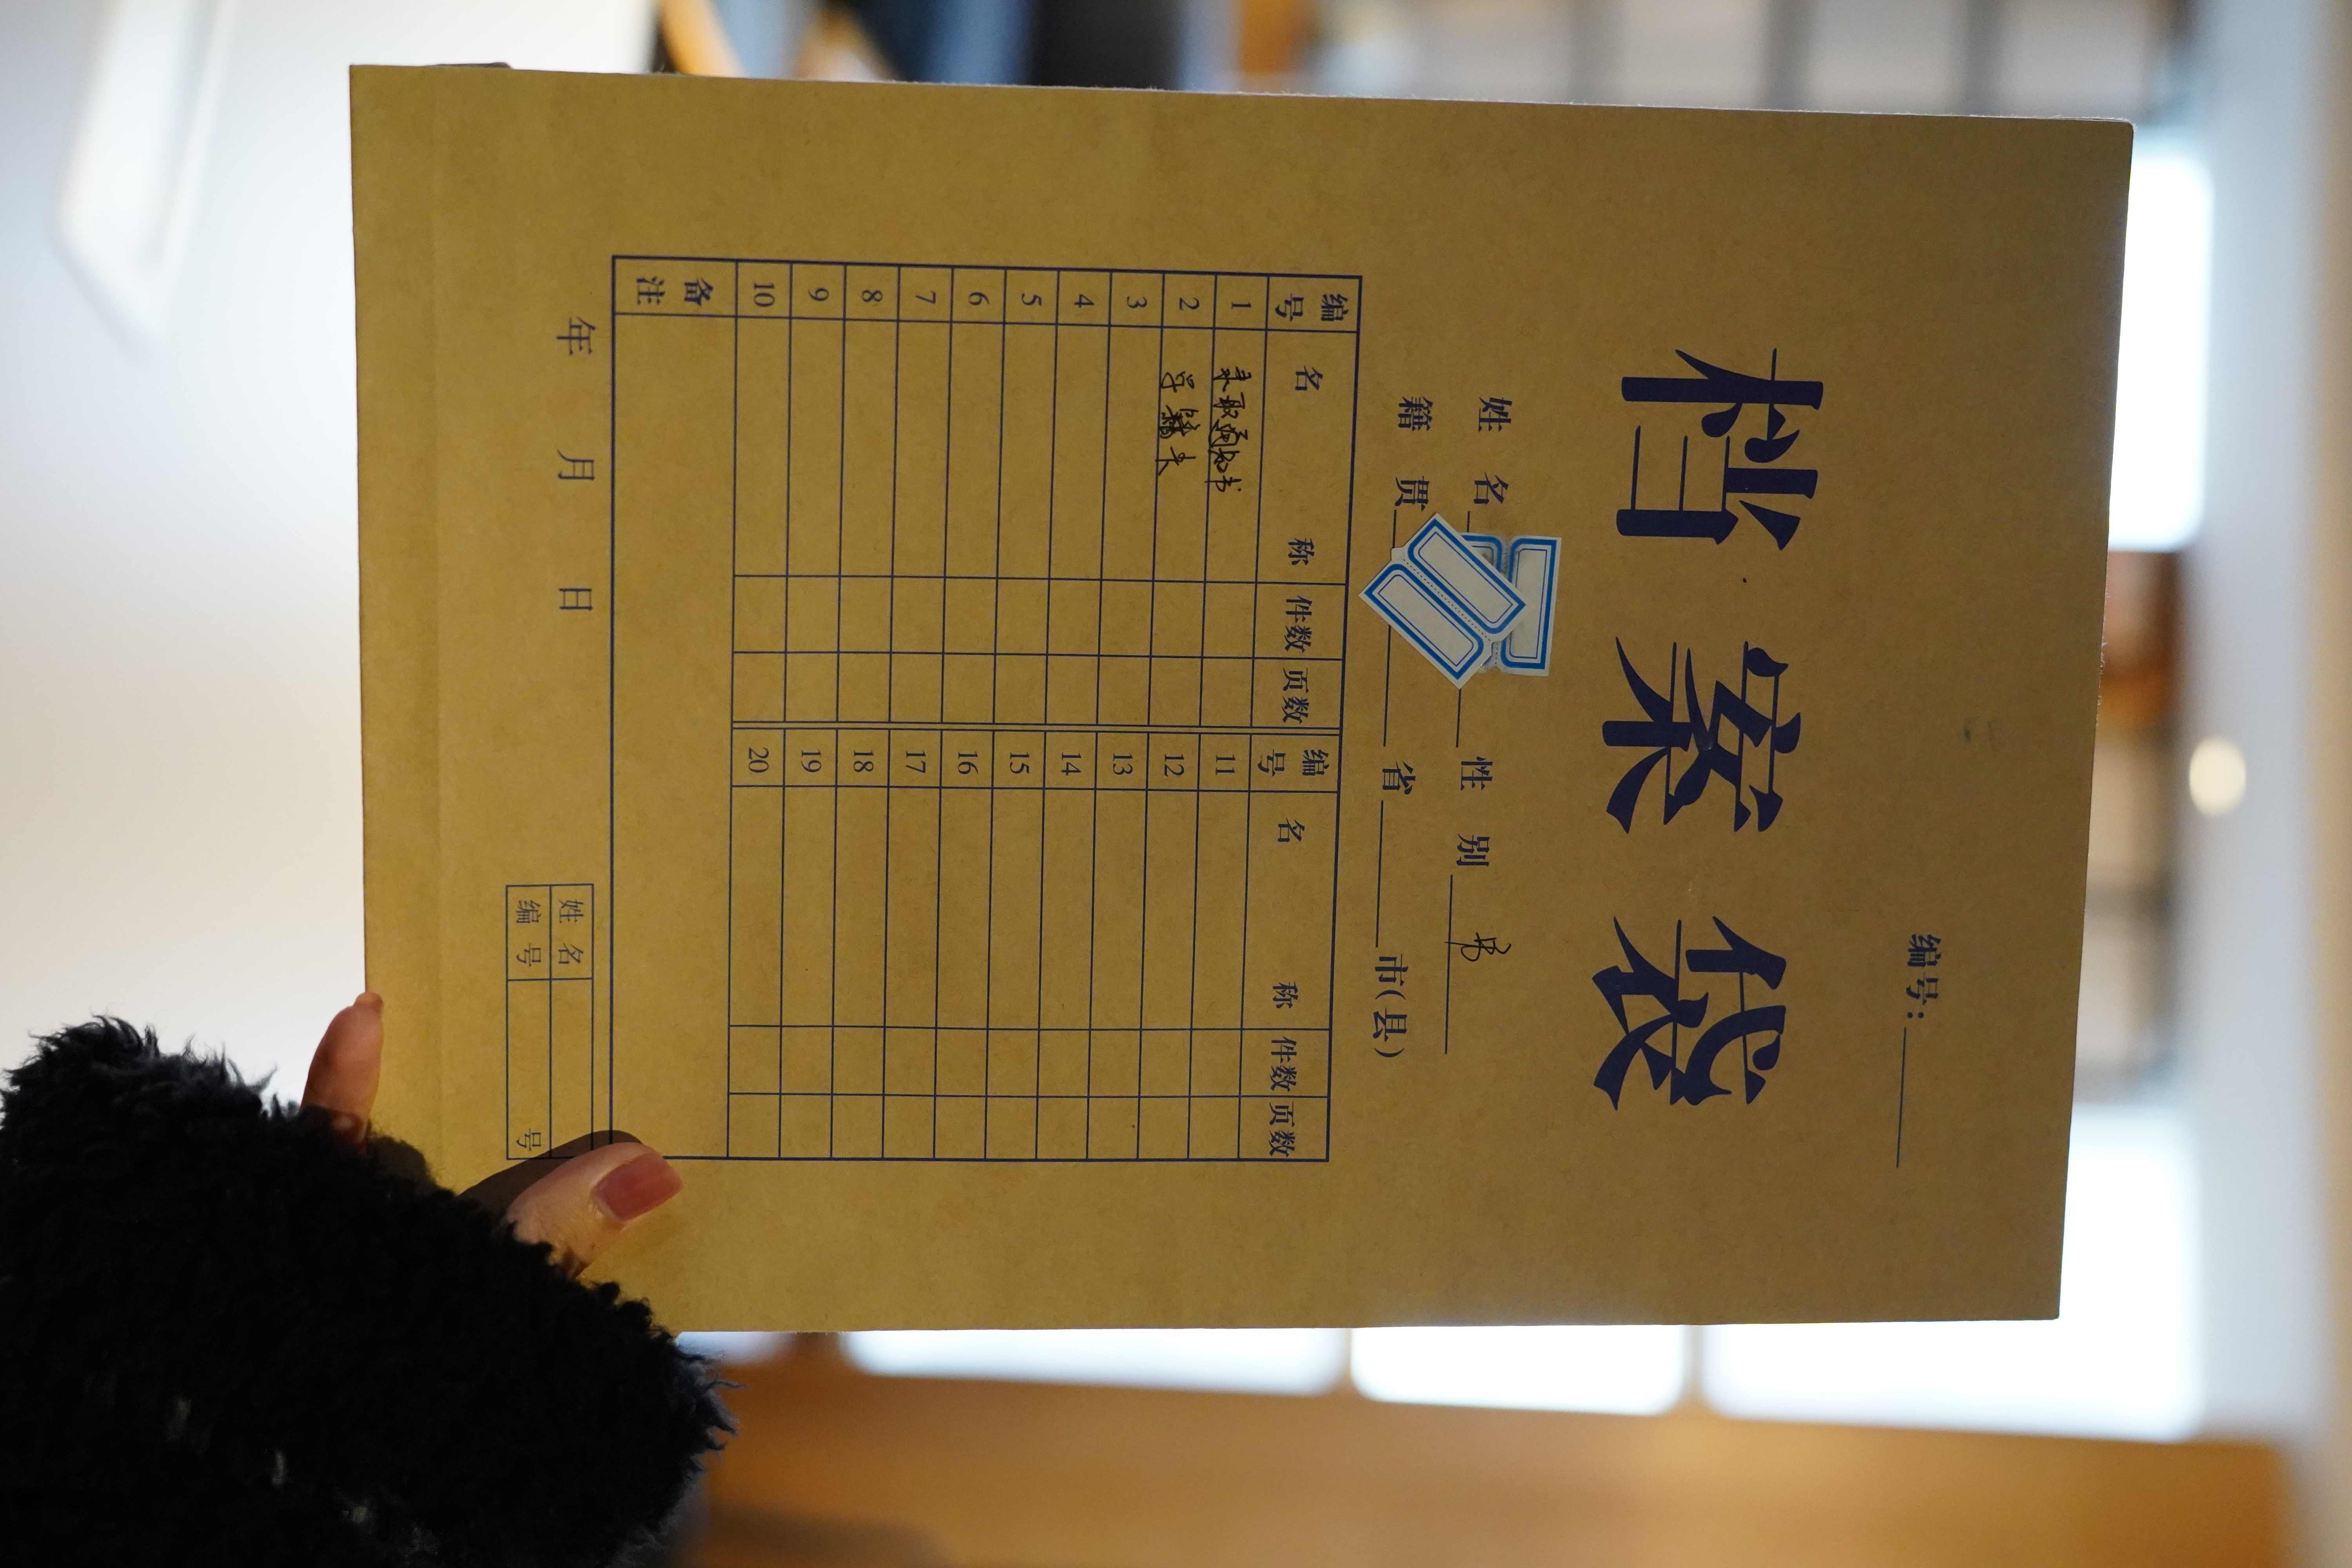 编号：
档案袋
姓名 性别 男
籍贯 省 市(县)
编号 名称 件数 页数 编号 名称 件数 页数
1 录取通知书 11
2 学籍卡 12
3 13
4 14
5 15
6 16
7 17
8 18
9 19
10 20
备注
年 月 日
姓名
编号 号